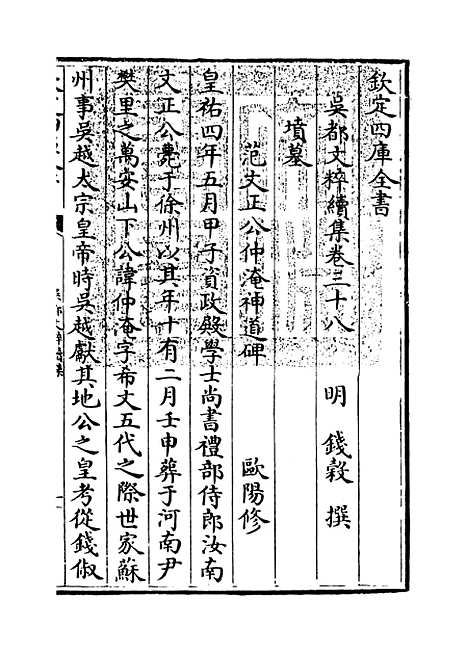 欽定四庫全書
吳都文粹續集卷三十八
明 錢穀 撰
墳墓
范文正公仲淹神道碑 歐陽修
皇祐四年五月甲子資政殿學士尚書禮部侍郎汝南
文正公薨于徐州以其年十有二月壬申葬于河南尹
樊里之萬安山下公諱仲淹字希文五代之際世家蘇
州事吳越太宗皇帝時吳越獻其地公之皇考從錢俶